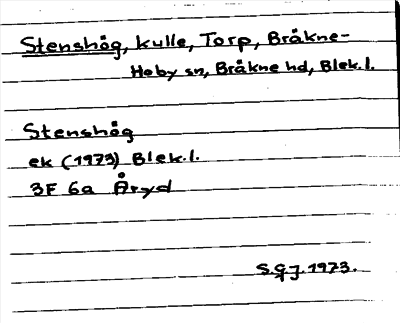 Stenshög, kulle, Torp, Bräkne-
Hoby sn, Bräkne hd, Blek.l.
Stenshög
ek (1973) Blek.l.
3F 6a Åryd
S.G.J. 1973.